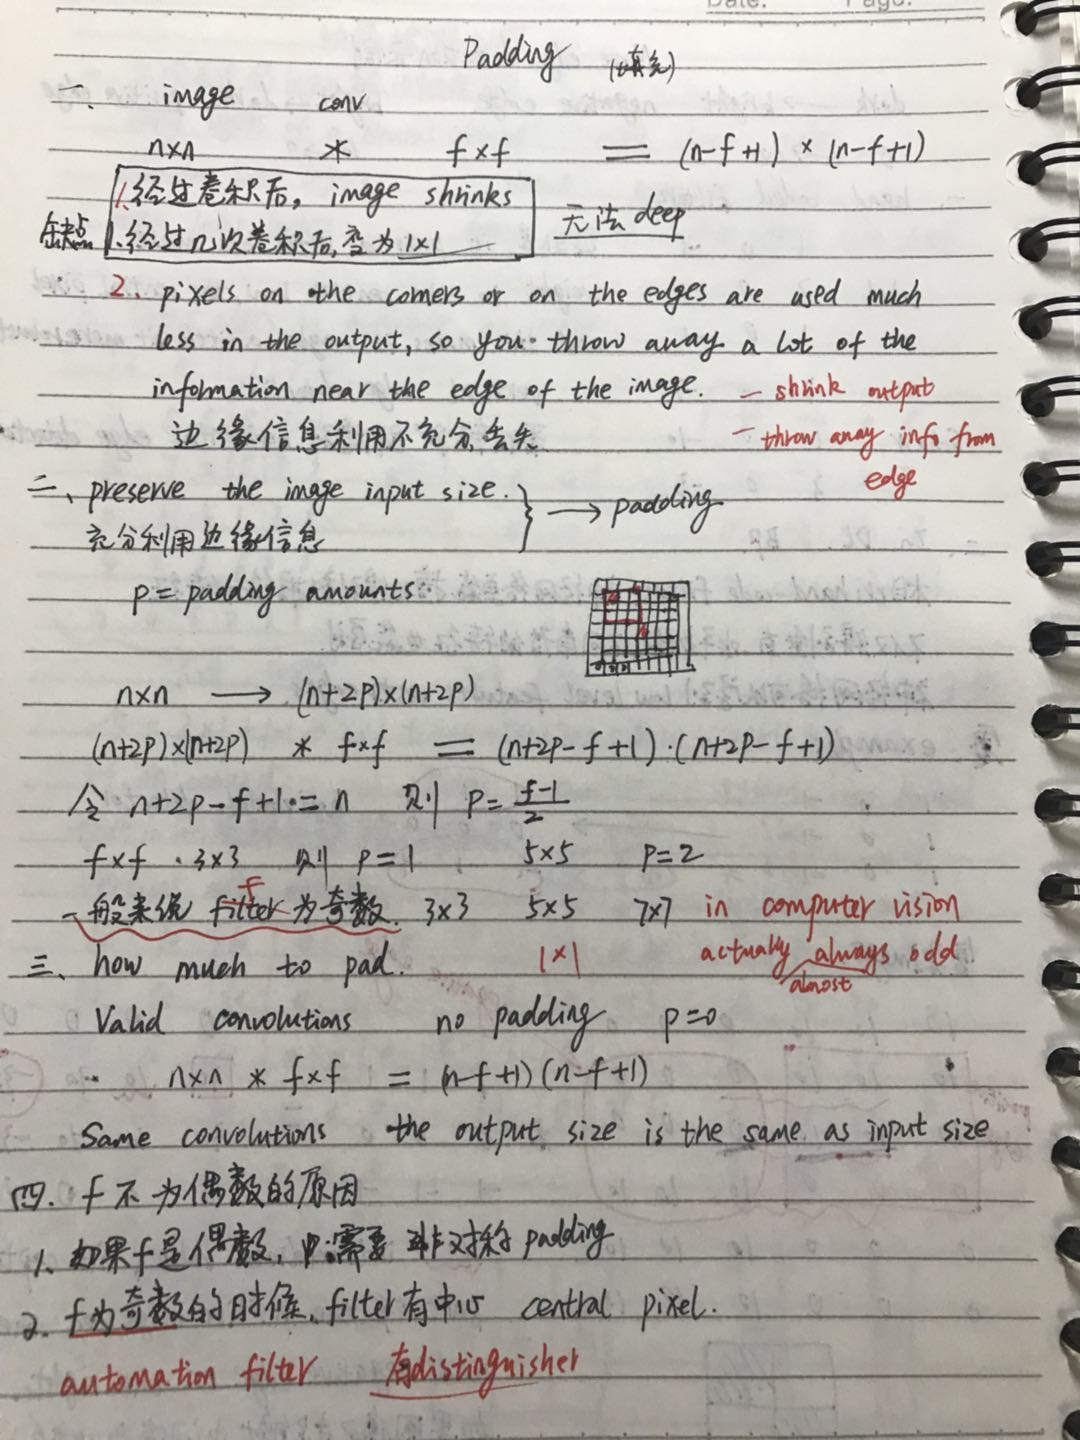 Date: Page:
Padding (填充)
一. image conv
n×n * f×f = (n-f+1) × (n-f+1)
1.经过卷积后, image shrinks
缺点 1.经过几次卷积后,变为1×1 无法deep
2. pixels on the corners or on the edges are used much
less in the output, so you throw away a lot of the
information near the edge of the image. - shrink output
边缘信息利用不充分,丢失 - throw away info from
edge
二、preserve the image input size. → padding
充分利用边缘信息
p = padding amounts
n×n → (n+2p)×(n+2p)
(n+2p)×(n+2p) * f×f = (n+2p-f+1)·(n+2p-f+1)
令 n+2p-f+1 = n 则 p = (f-1)/2
f×f . 3×3 则 p=1 5×5 p=2
一般来说 filter f 为奇数. 3×3 5×5 7×7 in computer vision
1×1 actually always odd
almost
三、how much to pad.
Valid convolutions no padding p=0
n×n * f×f = (n-f+1)(n-f+1)
Same convolutions the output size is the same as input size
四. f不为偶数的原因
1. 如果f是偶数, 需要非对称padding
2. f为奇数的时候, filter有中心 central pixel.
automation filter 有distinguisher